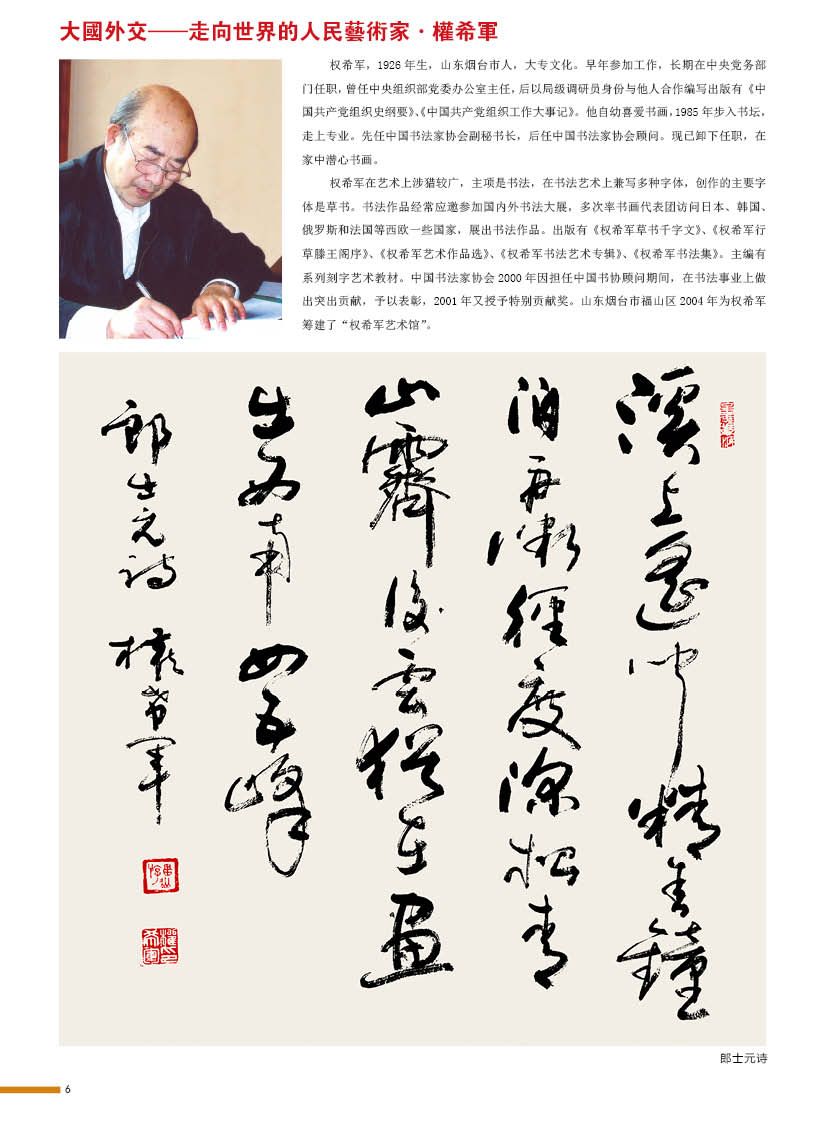 大國外交——走向世界的人民藝術家·權希軍
权希军，1926 年生，山东烟台市人，大专文化。早年参加工作，长期在中央党务部
门任职，曾任中央组织部党委办公室主任，后以局级调研员身份与他人合作编写出版有《中
国共产党组织史纲要》、《中国共产党组织工作大事记》。他自幼喜爱书画，1985 年步入书坛，
走上专业。先任中国书法家协会副秘书长，后任中国书法家协会顾问。现已卸下任职，在
家中潜心书画。
权希军在艺术上涉猎较广，主项是书法，在书法艺术上兼写多种字体，创作的主要字
体是草书。书法作品经常应邀参加国内外书法大展，多次率书画代表团访问日本、韩国、
俄罗斯和法国等西欧一些国家，展出书法作品。出版有《权希军草书千字文》、《权希军行
草滕王阁序》、《权希军艺术作品选》、《权希军书法艺术专辑》、《权希军书法集》。主编有
系列刻字艺术教材。中国书法家协会 2000 年因担任中国书协顾问期间，在书法事业上做
出突出贡献，予以表彰，2001 年又授予特别贡献奖。山东烟台市福山区 2004 年为权希军
筹建了“权希军艺术馆”。
溪上遙聞精舍鐘
泊舟微徑度深松青
山霽後雲猶在畫
出西南四五峰
郎士元詩 權希軍
郎士元诗
6